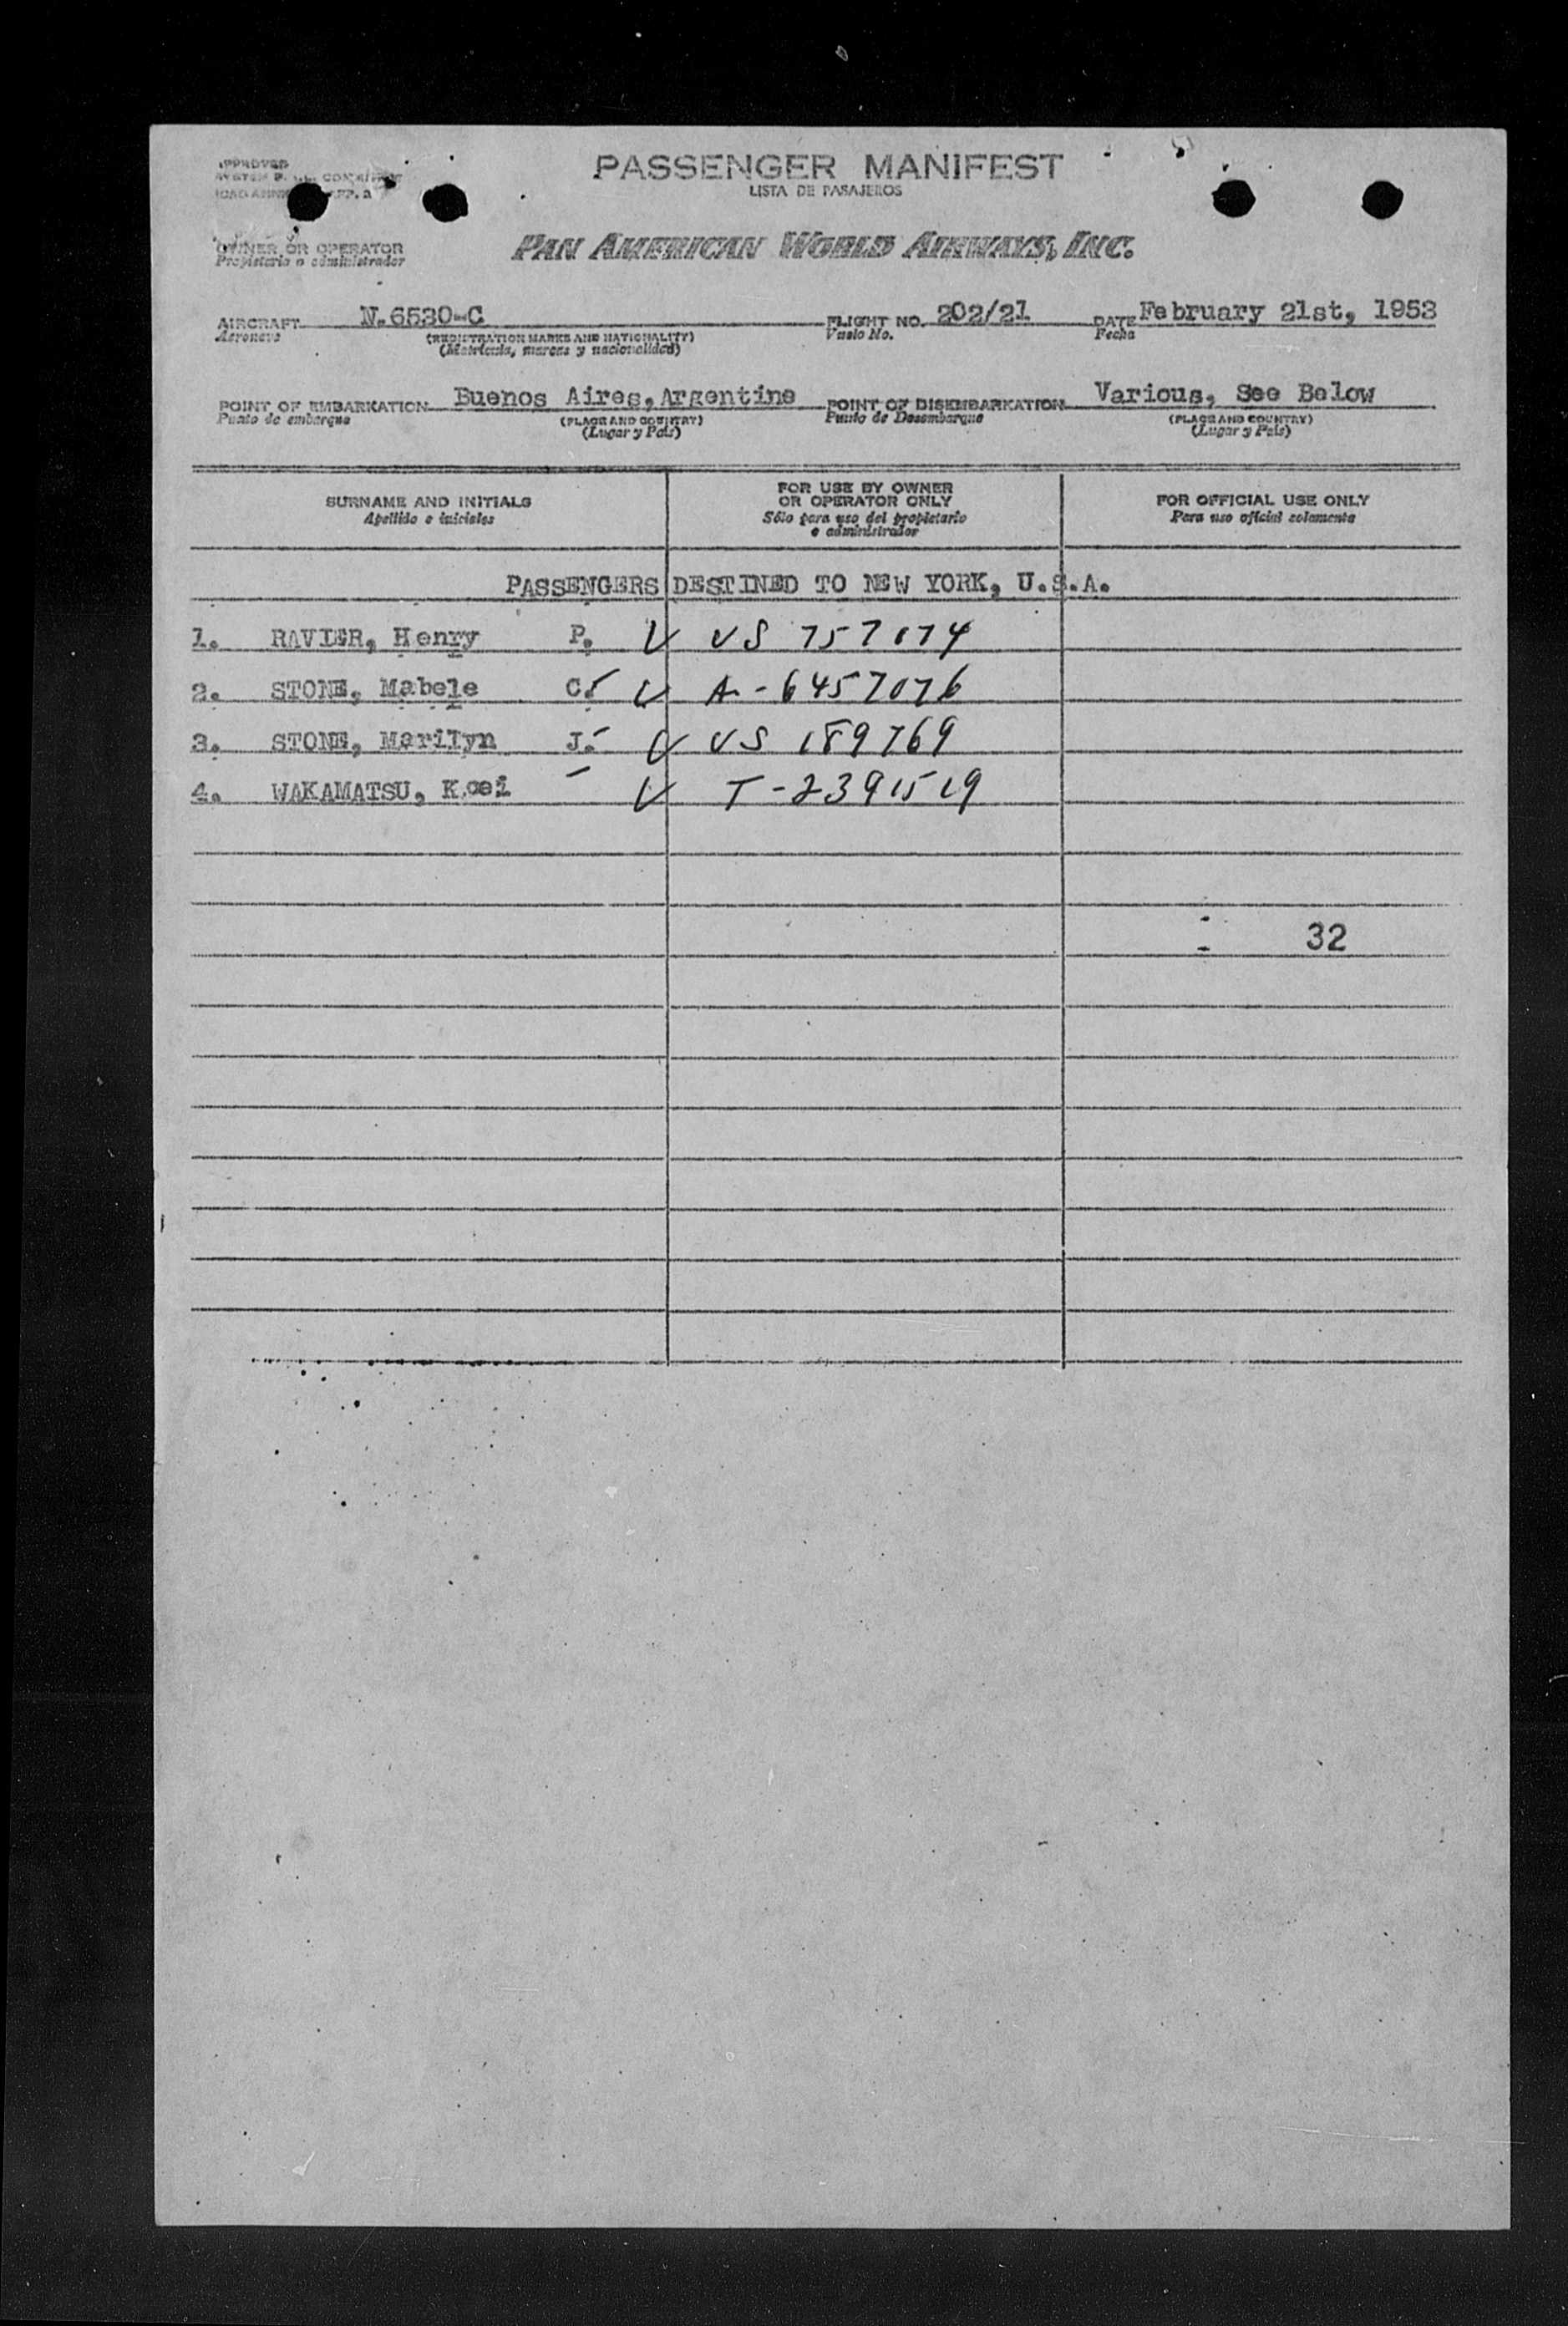 APPROVED
PASSENGER MANIFEST
LISTA DE PASAJEROS
OWNER OR OPERATOR
Propietario o administrador
PAN AMERICAN WORLD AIRWAYS, INC.
AIRCRAFT N.6530-C FLIGHT NO. 202/21 DATE February 21st, 1953
Aeronave (REGISTRATION MARKS AND NATIONALITY) Vuelo No. Fecha
(Matrícula, marcas y nacionalidad)
POINT OF EMBARKATION Buenos Aires, Argentine POINT OF DISEMBARKATION Various, See Below
Punto de embarque (PLACE AND COUNTRY) Punto de Desembarque (PLACE AND COUNTRY)
(Lugar y País) (Lugar y País)
SURNAME AND INITIALS
Apellido e iniciales
FOR USE BY OWNER
OR OPERATOR ONLY
Sólo para uso del propietario
o administrador
FOR OFFICIAL USE ONLY
Para uso oficial solamente
PASSENGERS DESTINED TO NEW YORK, U.S.A.
1. RAVIER, Henry P. V VS 757074
2. STONE, Mabele C. V A-6457076
3. STONE, Marilyn J. V VS 189769
4. WAKAMATSU, Koei V T-2391519
32